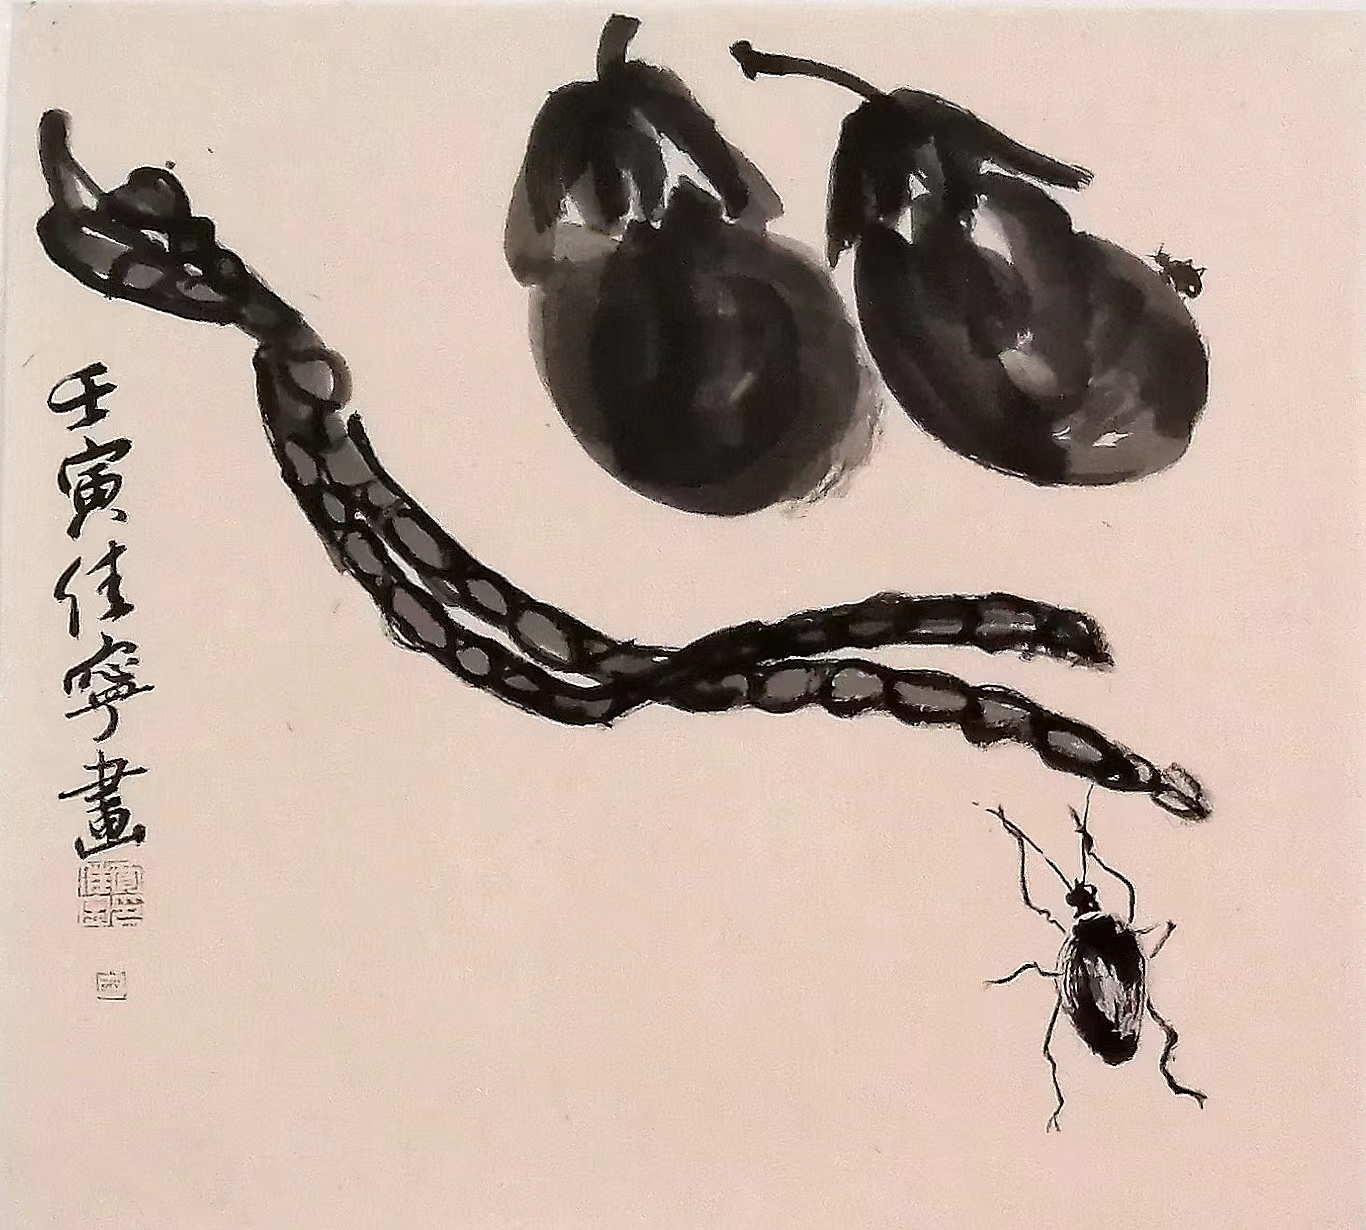 壬寅佳寧畫